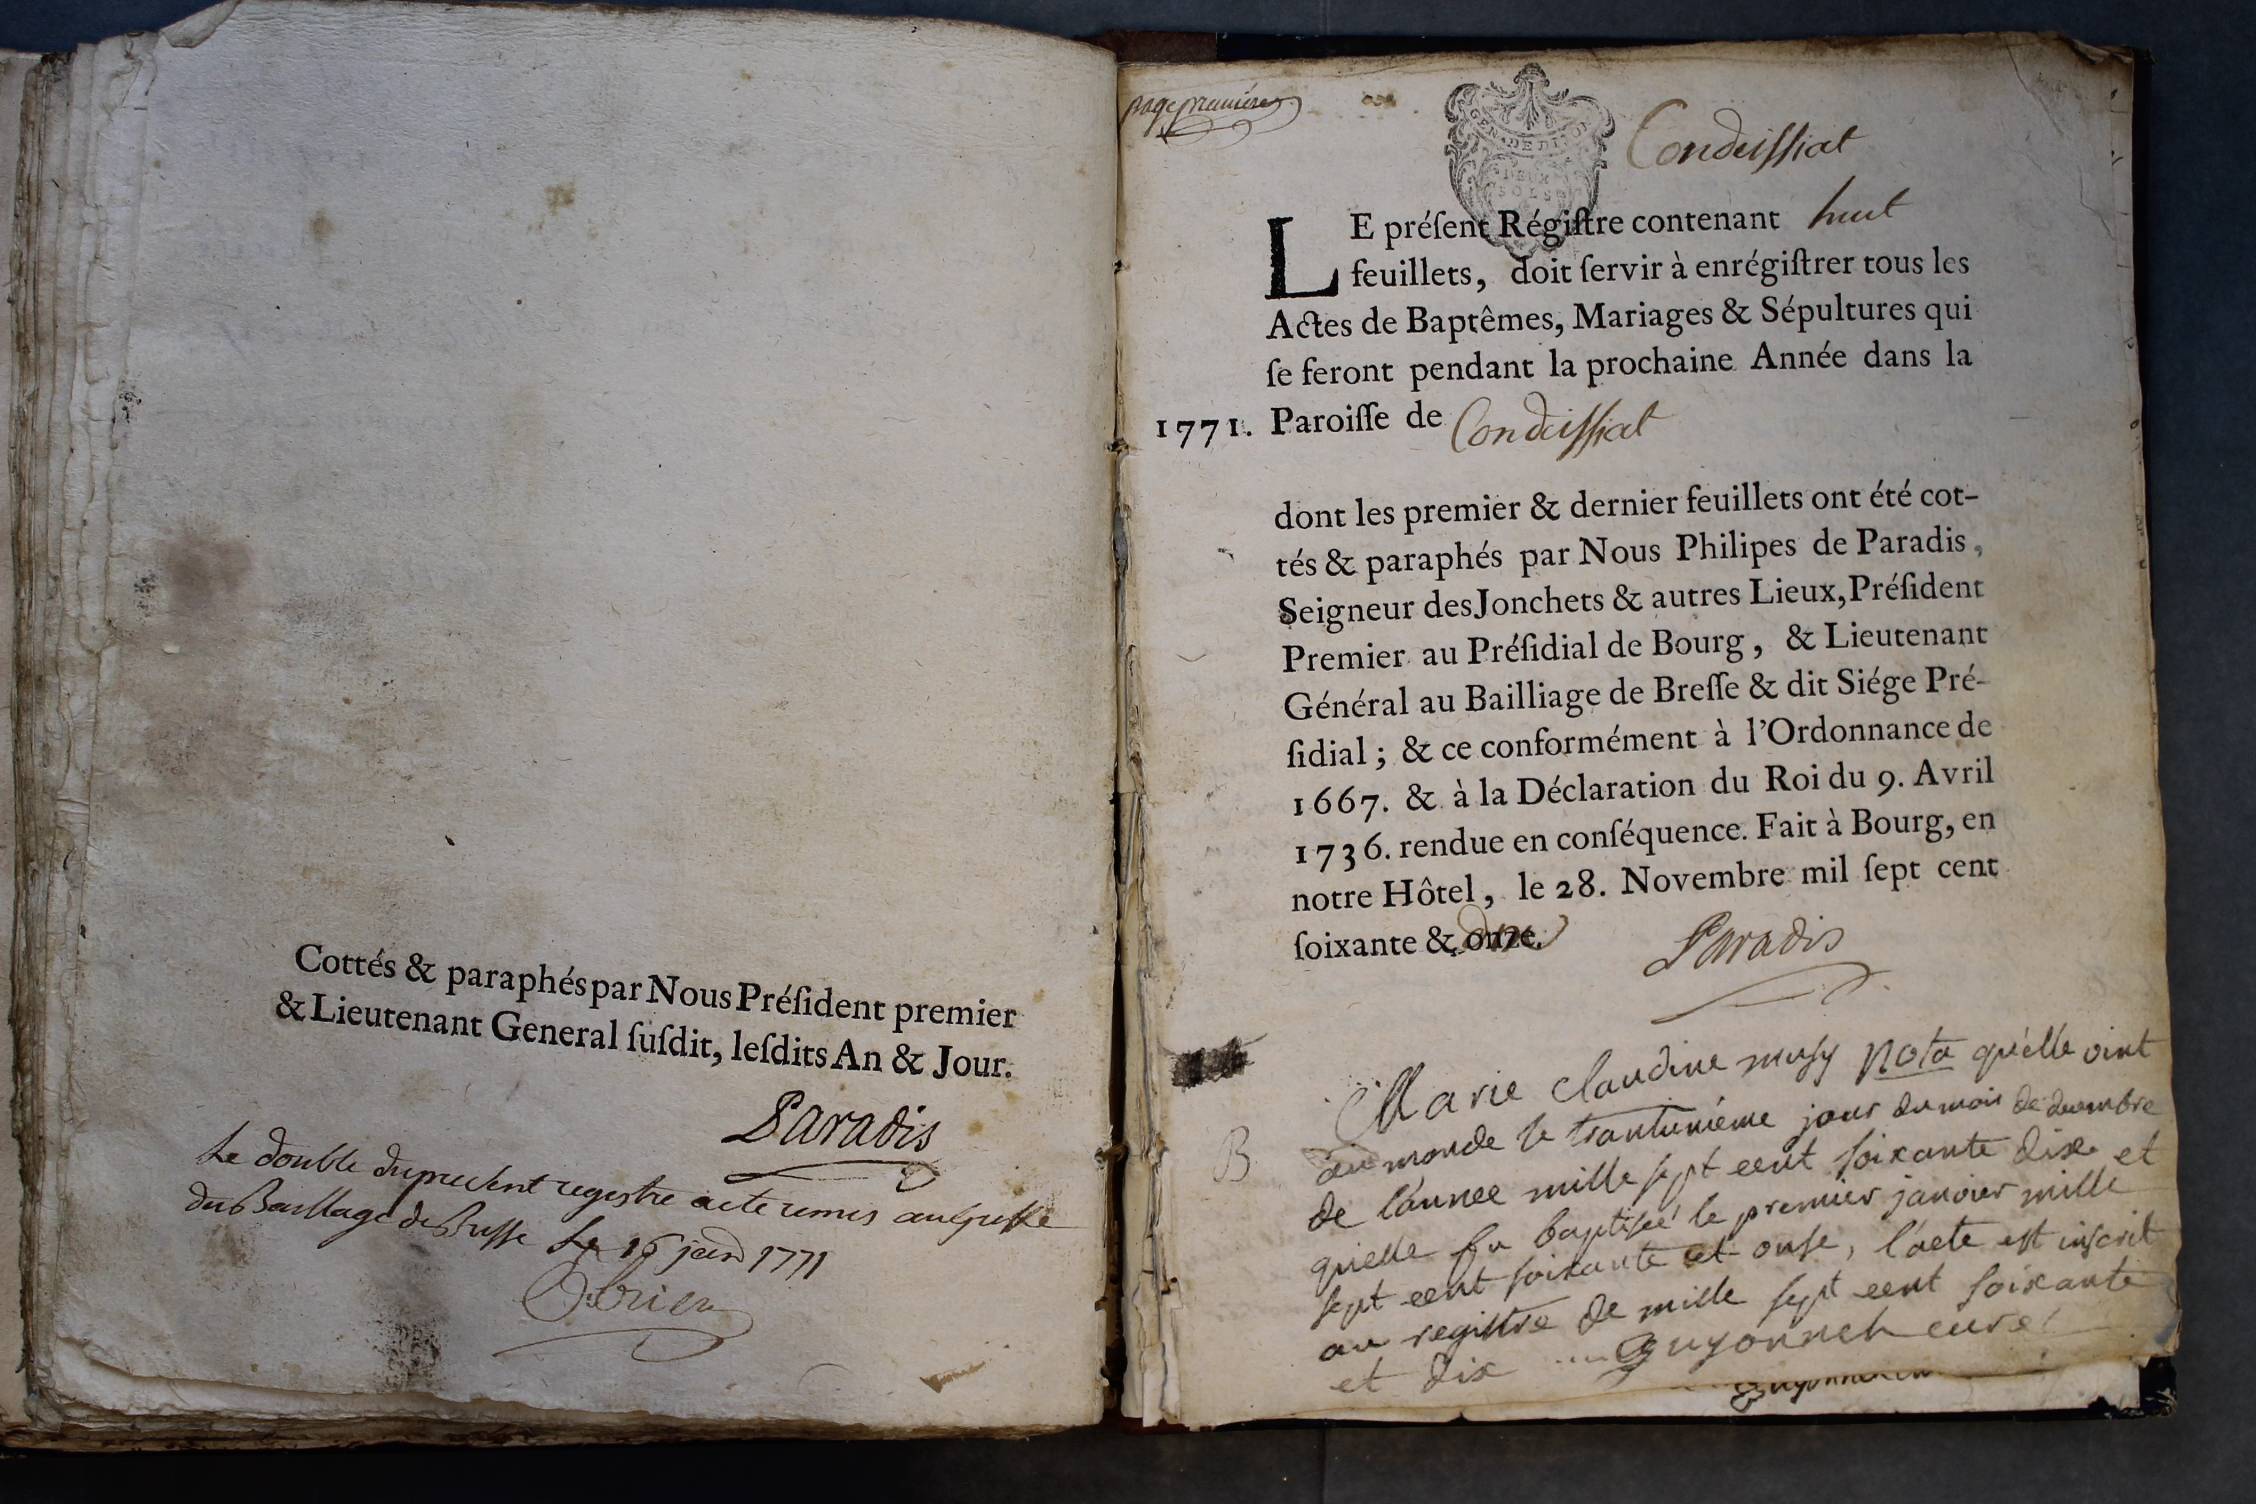 Cottés & paraphés par Nous Préſident premier
& Lieutenant General ſuſdit, leſdits An & Jour.
Paradis
Le double du present registre a ete remis au greffe
du Baillage de Bresse Le 16 janv 1771
page premiere
GEN. DE DIJON
DEUX
SOLS
Condeissiat
LE préſent Régiſtre contenant huit
feuillets, doit ſervir à enrégiſtrer tous les
Actes de Baptêmes, Mariages & Sépultures qui
ſe feront pendant la prochaine Année dans la
1771. Paroiſſe de Condeissiat
dont les premier & dernier feuillets ont été cot-
tés & paraphés par Nous Philipes de Paradis,
Seigneur des Jonchets & autres Lieux, Préſident
Premier au Préſidial de Bourg, & Lieutenant
Général au Bailliage de Breſſe & dit Siége Pré-
ſidial ; & ce conformément à l'Ordonnance de
1667. & à la Déclaration du Roi du 9. Avril
1736. rendue en conſéquence. Fait à Bourg, en
notre Hôtel, le 28. Novembre mil ſept cent
ſoixante & onze. dix
Paradis
Marie claudine musy Nota qu'elle vint
B au monde le trantunième jour du mois de decembre
de l'annee mille sept cent soixante dix et
qu'elle fu baptisée le premier janvier mille
sept cent soixante et onse, l'acte est inscrit
au registre de mille sept cent soixante
et dix ... Guyonnet curé